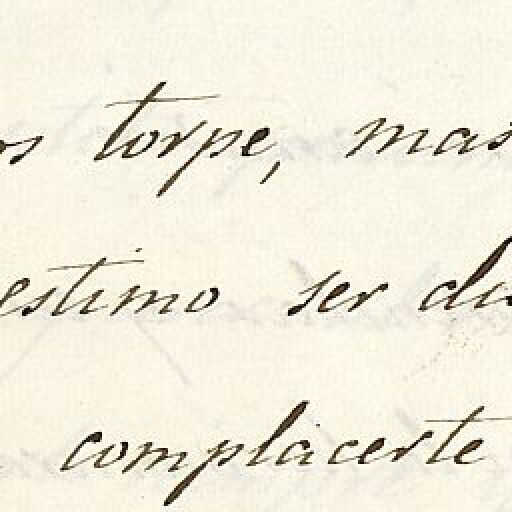 os torpe, mas
estimo ser du
complacerte